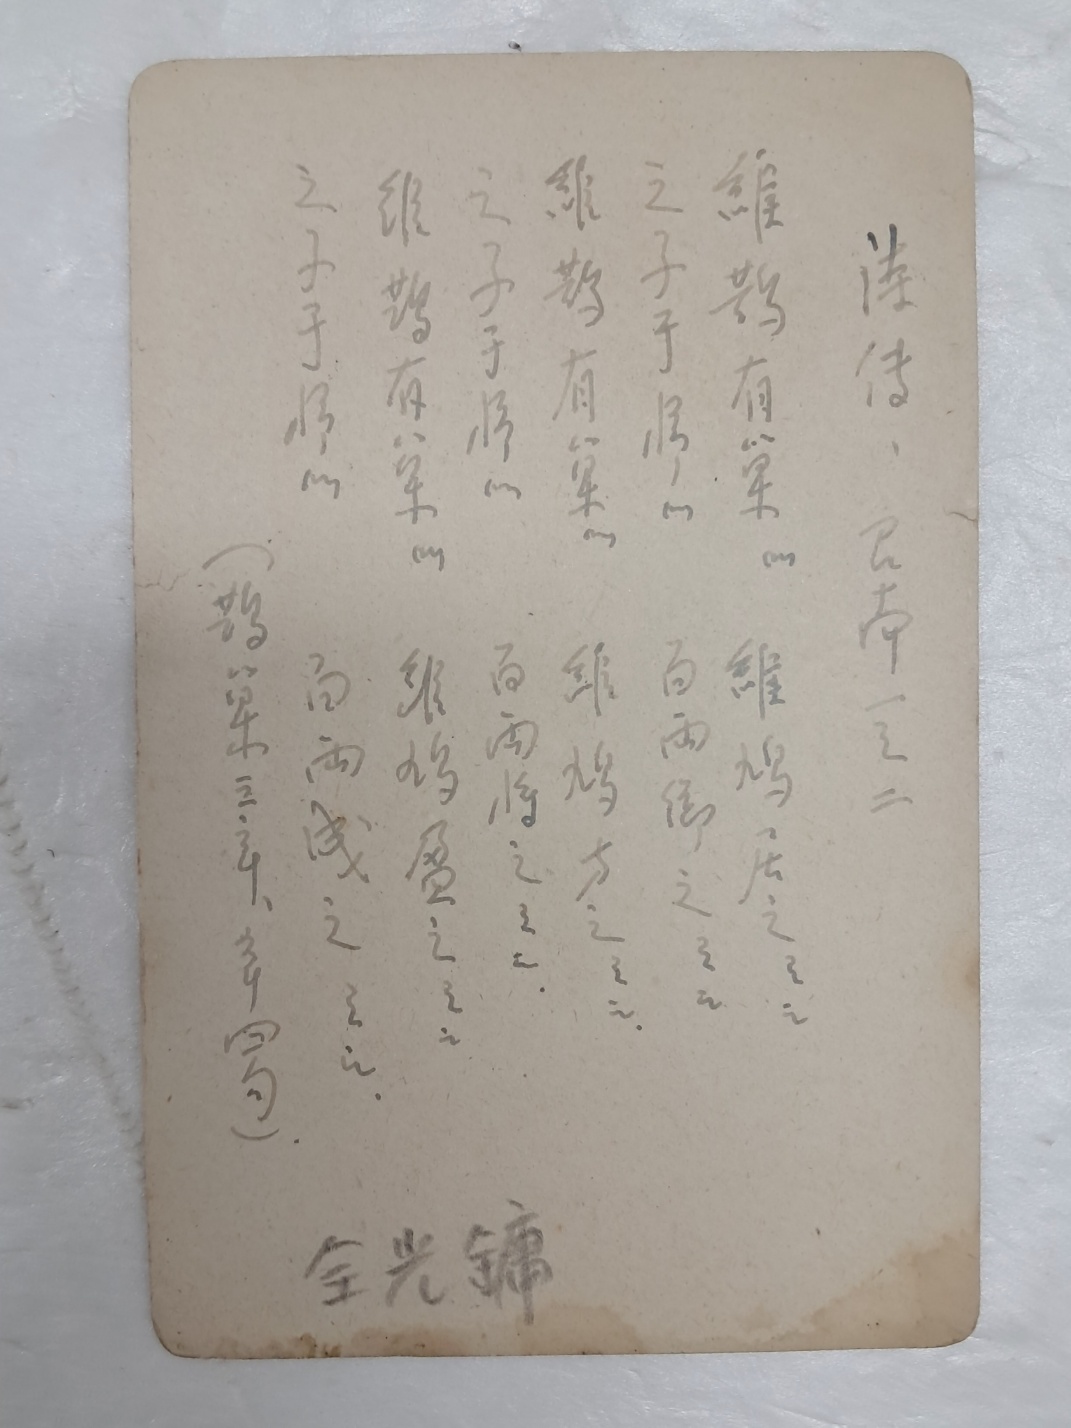 詩傳、召南一之二
維鵲有巢 維鳩居之
之子于歸 百兩御之
維鵲有巢 維鳩方之
之子于歸 百兩將之
維鵲有巢 維鳩盈之
之子于歸 百兩成之
(鵲巢三章、章四句).
全光鏞